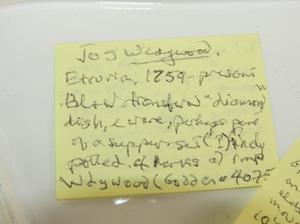 Jos Wedgwood.
Etruria, 1759-present
Bl + w transferw "diamond
dish, e ware, perhaps part
of a supper set (?) Andy
potted. of marks a) imp
Wdywood (Godden 407